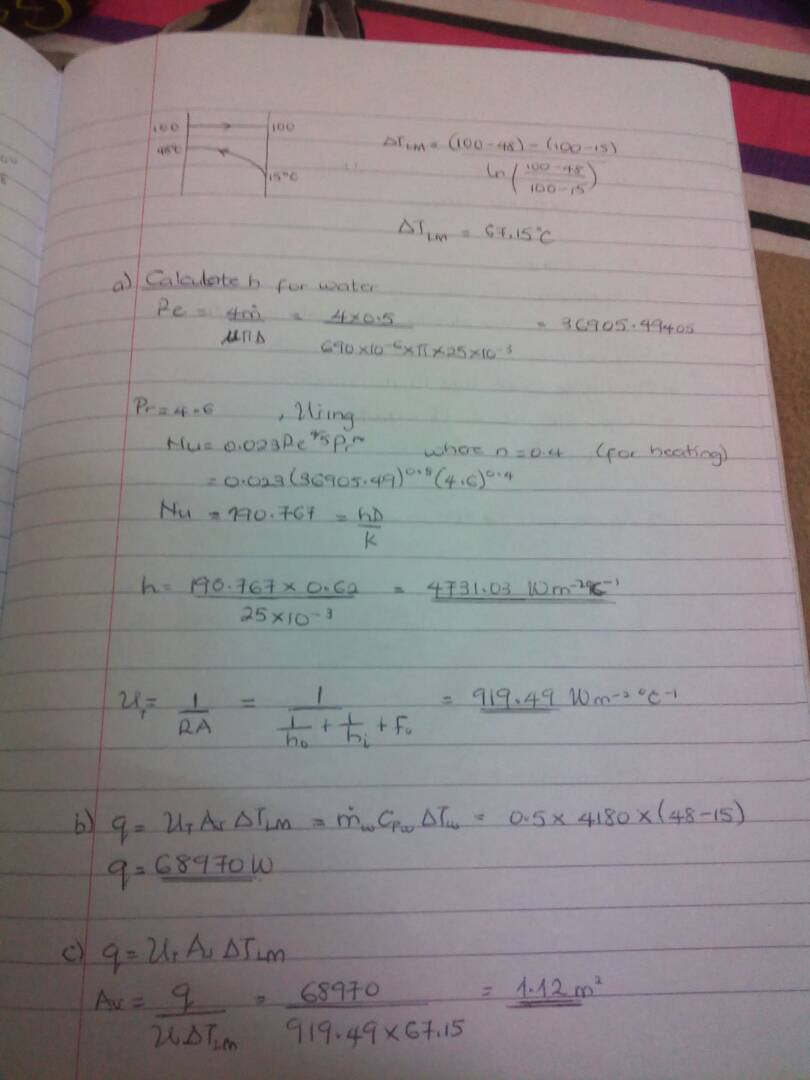 100 100
48°C
15°C
ΔT_LM = (100-48) - (100-15) / ln((100-48)/(100-15))
ΔT_LM = 67.15°C
a) Calculate h for water
Re = 4ṁ/(μπD) = 4×0.5/(690×10⁻⁶×π×25×10⁻³) = 36905.49405
Pr = 4.6 , Using
Nu = 0.023Re^(4/5)Pr^n where n = 0.4 (for heating)
= 0.023(36905.49)^0.8 (4.6)^0.4
Nu = 190.767 = hD/K
h = 190.767 × 0.62/(25×10⁻³) = 4731.03 Wm⁻²°C⁻¹
U_r = 1/(RA) = 1/(1/h₀ + 1/hᵢ + F₀) = 919.49 Wm⁻²°C⁻¹
b) q = U_r A_r ΔT_LM = ṁ_w Cp_w ΔT_w = 0.5 × 4180 × (48-15)
q = 68970W
c) q = U_r A_r ΔT_LM
A_r = q/(U_r ΔT_LM) = 68970/(919.49 × 67.15) = 1.12 m²